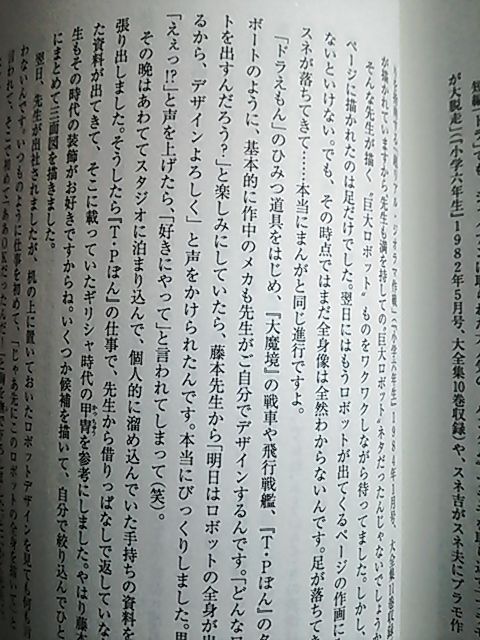 が大脱走」(「小学六年生」1982年5月号、大全集10巻収録)や、スネ吉がスネ夫にプラモ作
リアル・ジオラマ作戦」(「小学六年生」1981年1月号、大全集10巻収録)
が描かれていますから先生も満を持しての〝巨大ロボット〟ネタだったんじゃないでしょう
そんな先生が描く〝巨大ロボット〟ものをワクワクしながら待ってました。しかし、
ページに描かれたのは足だけでした。翌日にはもうロボットが出てくるページの作画に
ないといけない。でも、その時点ではまだ全身像は全然わからないんです。足が落ちて
スネが落ちてきて……本当にまんがと同じ進行ですよ。
『ドラえもん』のひみつ道具をはじめ、『大魔境』の戦車や飛行戦艦、『T・Pぼん』の
ボートのように、基本的に作中のメカも先生がご自分でデザインするんです。「どんなロ
トを出すんだろう?」と楽しみにしていたら、藤本先生から「明日はロボットの全身が出
るから、デザインよろしく」と声をかけられたんです。本当にびっくりしました。思
「えぇっ!?」と声を上げたら、「好きにやって」と言われてしまって(笑)。
その晩はあわててスタジオに泊まり込んで、個人的に溜め込んでいた手持ちの資料を
張り出しました。そうしたら『T・Pぼん』の仕事で、先生から借りっぱなしで返していな
た資料が出てきて、そこに載っていたギリシャ時代の甲冑を参考にしました。やはり藤本
かっちゅう
生もその時代の装飾がお好きですからね。いくつか候補を描いて、自分で絞り込んでひと
にまとめて三面図を描きました。
翌日、先生が出社されましたが、机の上に置いておいたロボットデザインを見ても何も
わないんです。いつものように仕事を初めて、「じゃあ先にこのロボットの全身を描いて
言われて、そこで初めて「ああOKだったんだ!」と